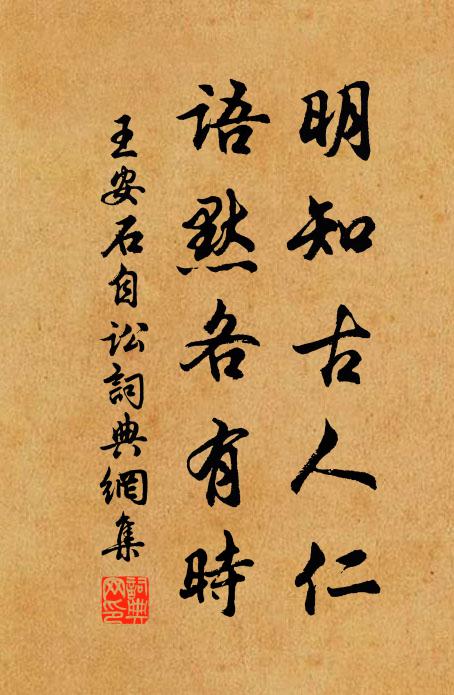 明知古人仁
語默各有時
王安石自訟詞典網集
詞典網印